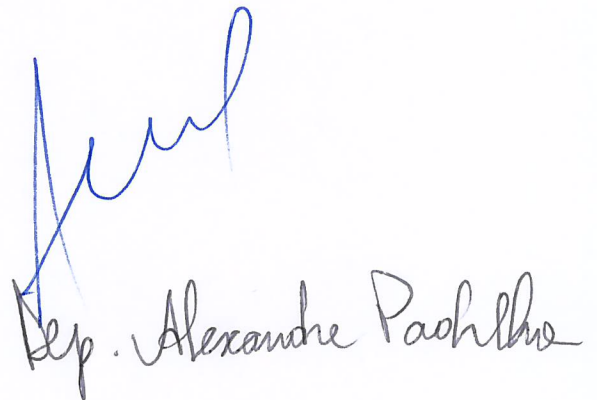 Dep. Alexandre Padilha